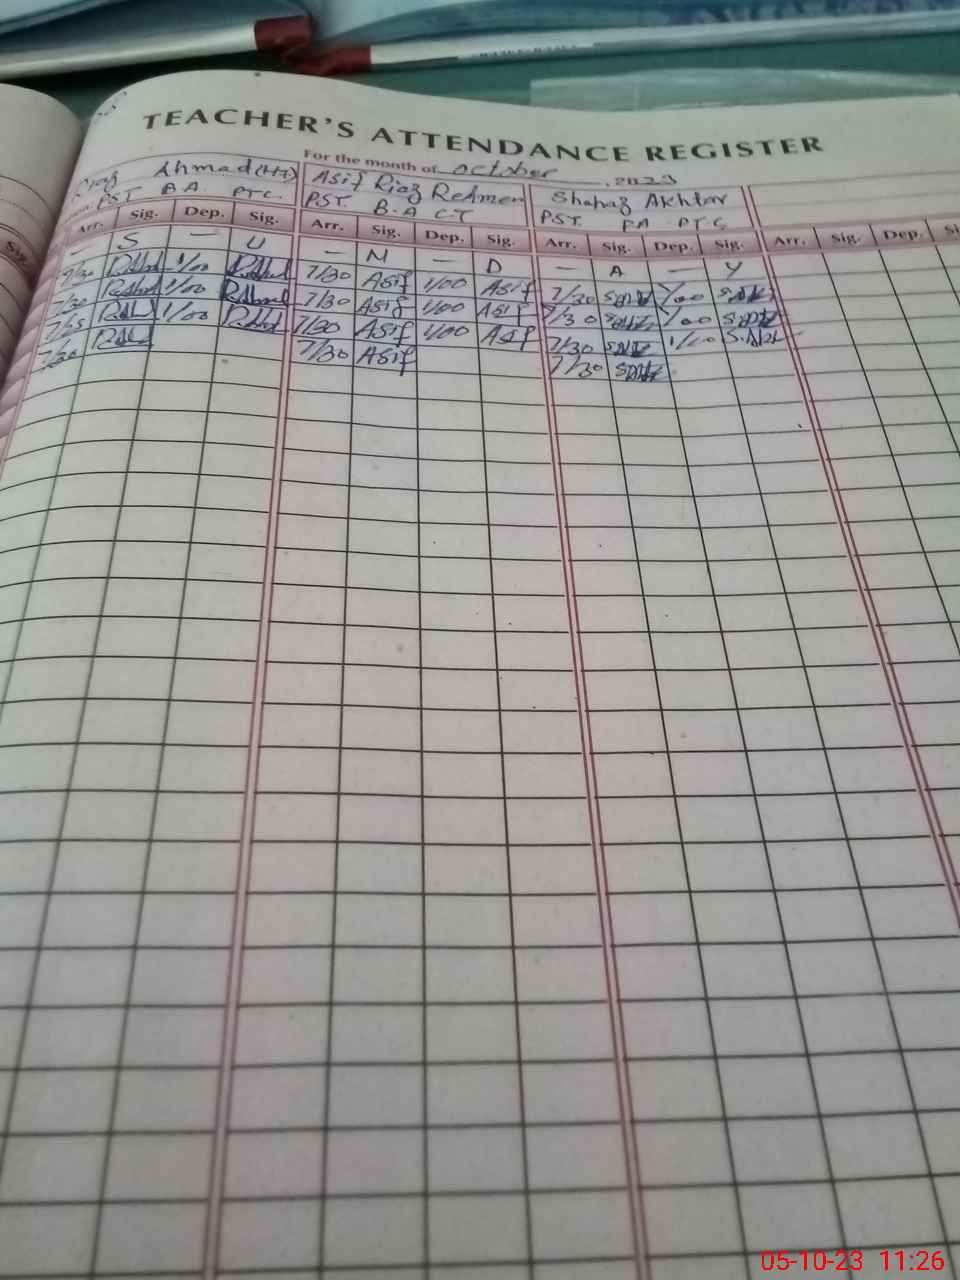 TEACHER'S ATTENDANCE REGISTER
For the month of October, 2023
Ahmad (HT) Asif Riaz Rehman Shahaz Akhtar
PST B.A. PTC. PST. B.A C.T PST. FA PTC
Sig. Arr. Sig. Dep. Sig. Arr. Sig. Dep. Sig. Arr. Sig. Dep. Sig. Arr. Sig. Dep. Si
— S — U — M — D — A — Y
7/30 1/00 7/30 Asif 1/00 Asif 7/30 1/00
7/30 1/00 7/30 Asif 1/00 Asif 7/30 1/00
7/25 1/00 7/30 Asif 1/00 Asif 7/30 1/00
7/30 7/30 Asif 7/30
05-10-23 11:26